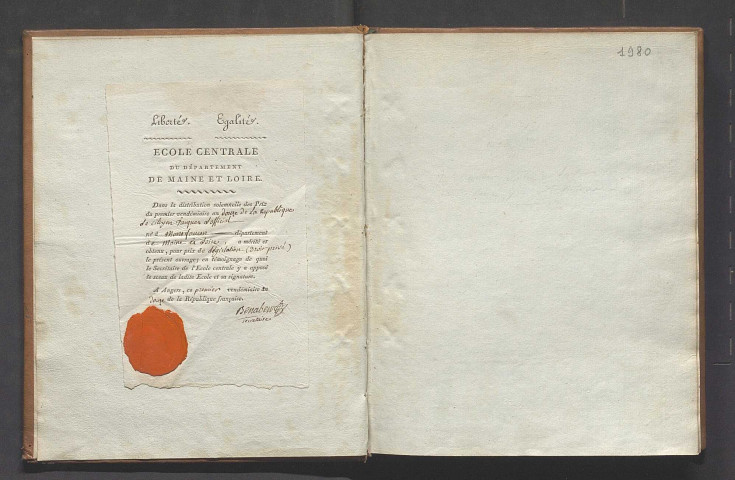 Liberté. Egalité.
ECOLE CENTRALE
DU DÉPARTEMENT
DE MAINE ET LOIRE.
Dans la distribution solemnelle des Prix
du premier vendémiaire an douze de la République
le citoyen Jacques
né à département
de Maine et Loire, a mérité et
obtenu, pour prix de Législation
le présent ouvrage; en témoignage de quoi
le Secrétaire de l'Ecole centrale y a apposé
le sceau de ladite Ecole et sa signature.
A Angers, ce premier vendémiaire an
douze de la République française.
secrétaire
1980